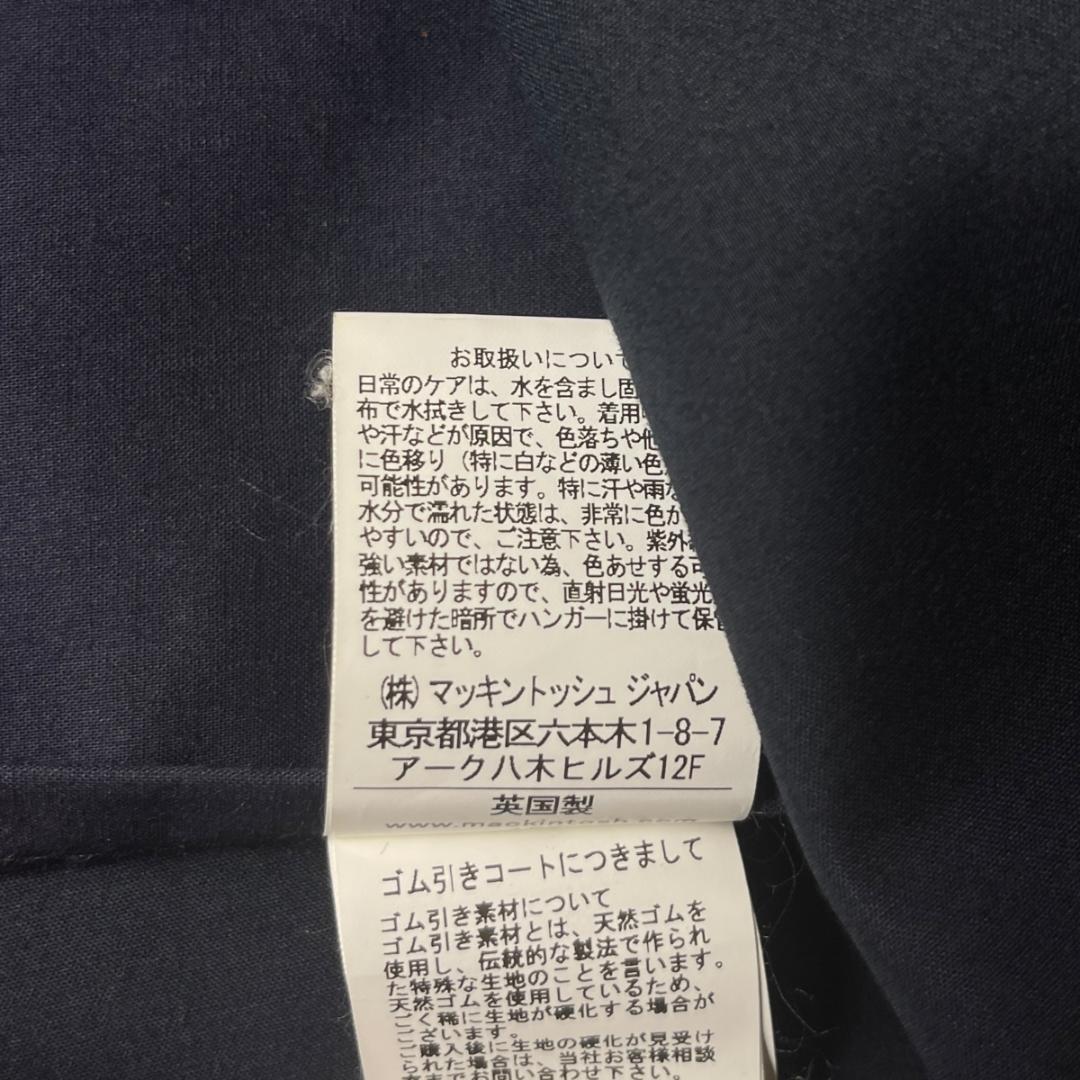 お取扱いについて
日常のケアは、水を含まし固
布で水拭きして下さい。着用
や汗などが原因で、色落ちや他
に色移り（特に白などの薄い色
可能性があります。特に汗や雨な
水分で濡れた状態は、非常に色が
やすいので、ご注意下さい。紫外
強い素材ではない為、色あせする可
性がありますので、直射日光や蛍光
を避けた暗所でハンガーに掛けて保管
して下さい。
㈱ マッキントッシュ ジャパン
東京都港区六本木1-8-7
アーク八木ヒルズ12F
英国製
www.mackintosh.com
ゴム引きコートにつきまして
ゴム引き素材について
ゴム引き素材とは、天然ゴムを
使用し、伝統的な製法で作られ
た特殊な生地のことを言います。
天然ゴムを使用しているため、
ごく稀に生地が硬化する場合が
ございます。
ご購入後に生地の硬化が見受け
られた場合は、当社お客様相談
までお問い合わせ下さい。